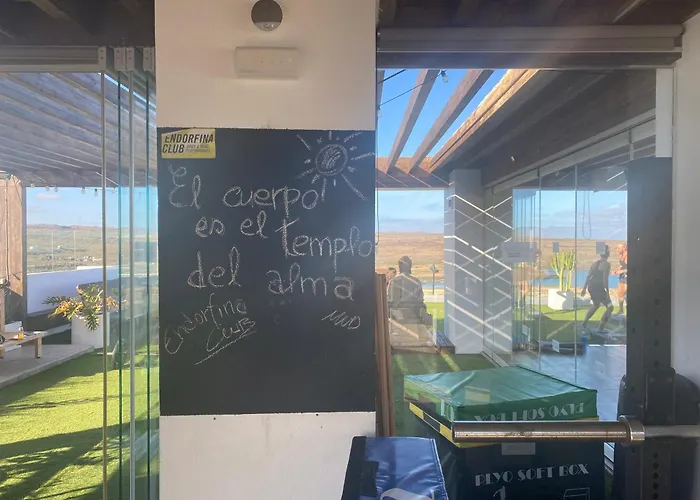 ENDORFINA
CLUB
El cuerpo
es el templo
del alma
Endorfina
CLUB
MWD
PLYO SOFT BOX
PLYO SOFT BOX